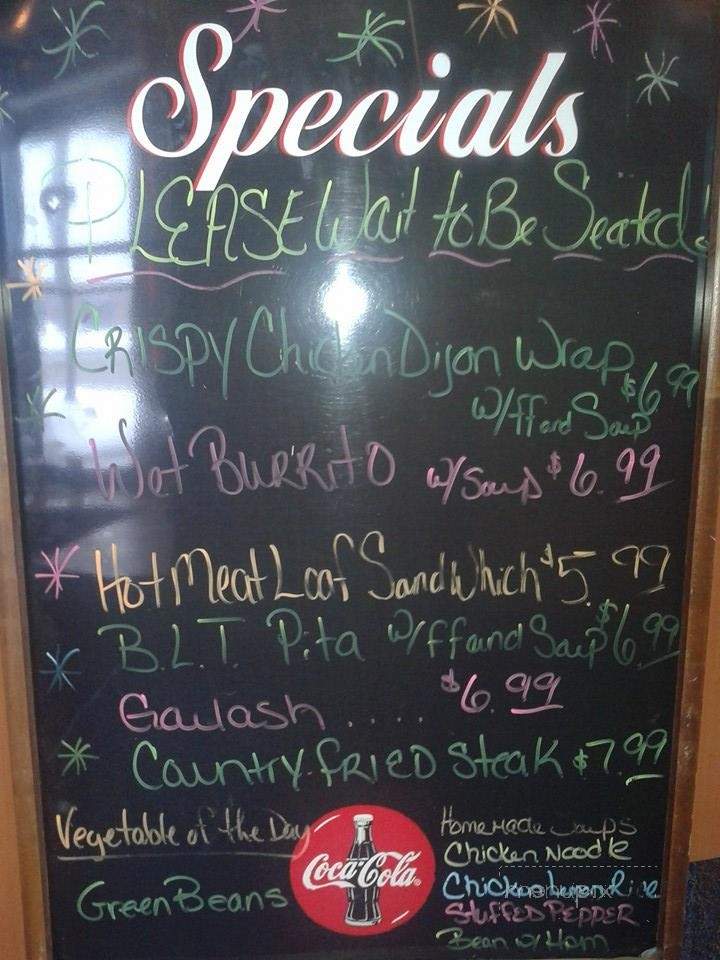 Specials
PLEASE Wait to Be Seated.
CRISPY Chicken Dijon Wrap $6.99
w/ff and Soup
Wet BURRITO w/Soup $6.99
Hot Meat Loaf Sandwhich $5.99
B.L.T. Pita w/ff and Soup $6.99
Gaulash ..... $6.99
Country FRIED Steak $7.99
Vegetable of the Day
Green Beans
Coca-Cola
Homemade Soups
Chicken Noodle
Chicken Rice
Stuffed PEPPER
Bean w/ Ham